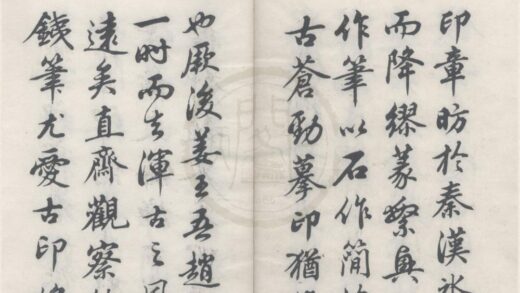 印章昉於秦漢
而降繆篆繁興
作筆以石作簡
古蒼勁摹印猶
也厥後姜王吾趙
一時而去渾古之
遠矣直齋觀察
鐵筆尤愛古印